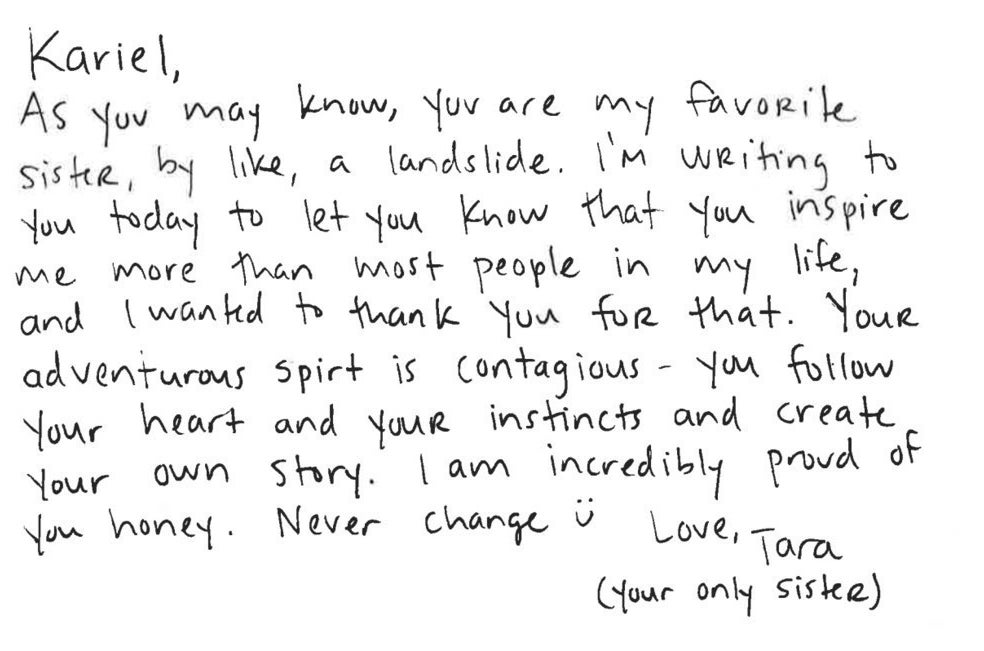 Kariel,
As you may know, you are my favorite
sister, by like, a landslide. I'm writing to
you today to let you know that you inspire
me more than most people in my life,
and I wanted to thank you for that. Your
adventurous spirt is contagious - you follow
your heart and your instincts and create
your own story. I am incredibly proud of
you honey. Never change ü Love, Tara
(your only sister)